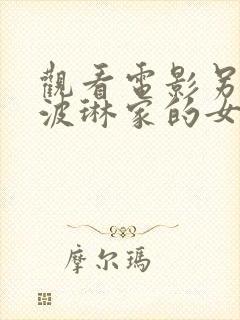 觀看電影另
波琳家的女
摩尔瑪